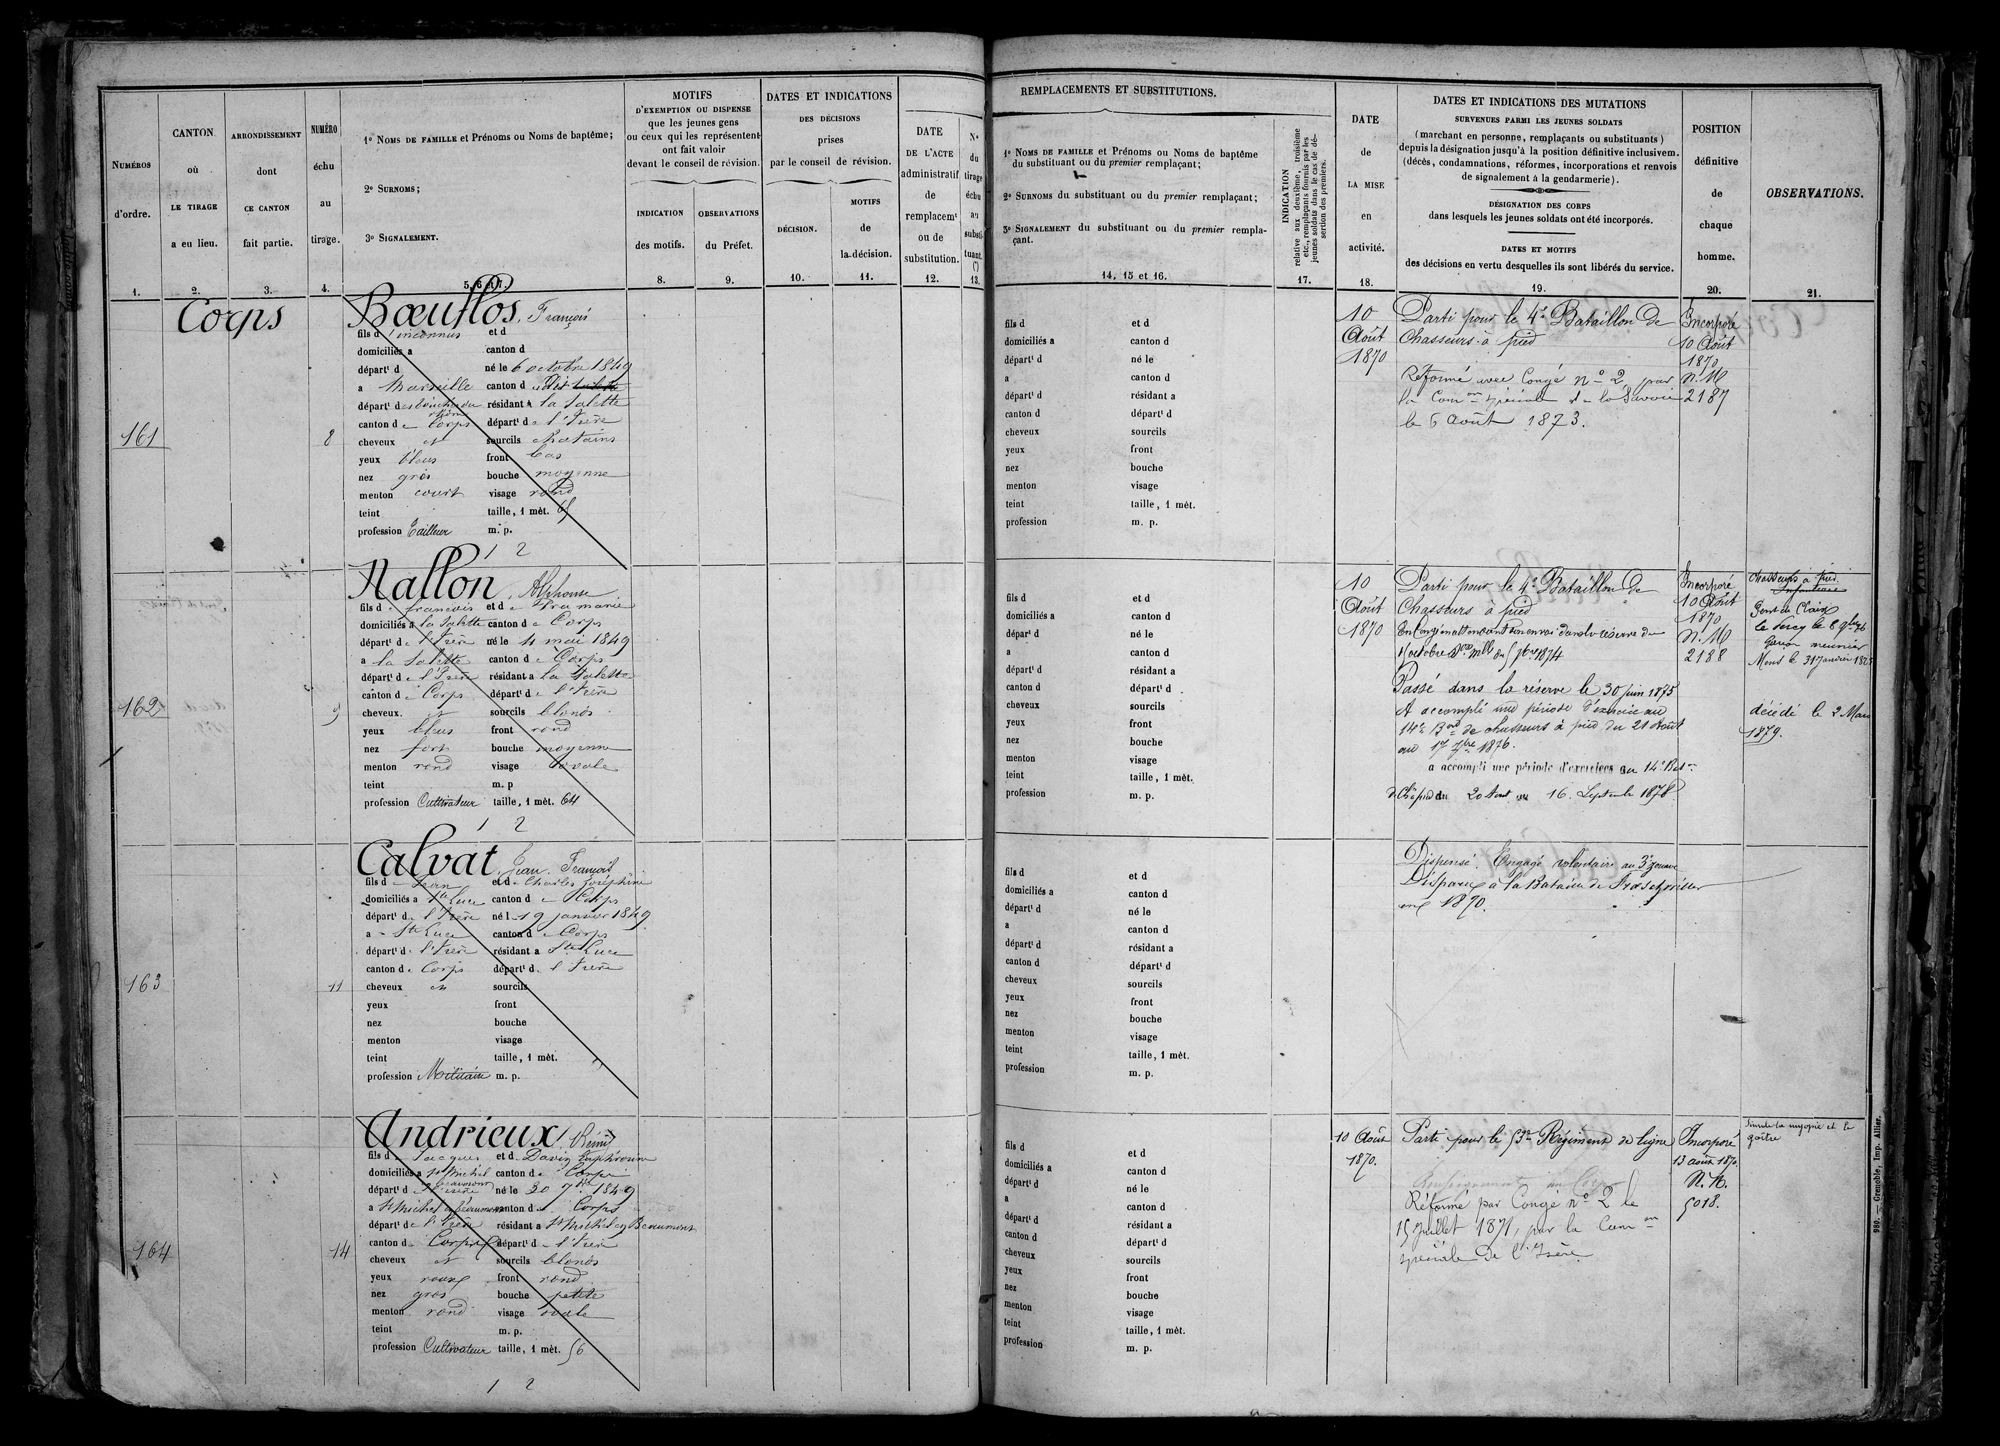 NUMÉROS
d'ordre.
1.
CANTON
où
LE TIRAGE
a eu lieu.
2.
ARRONDISSEMENT
dont
CE CANTON
fait partie.
3.
NUMÉRO
échu
au
tirage.
4.
1º NOMS DE FAMILLE et Prénoms ou Noms de baptême;
2º SURNOMS;
3º SIGNALEMENT.
5, 6 et 7.
MOTIFS
D'EXEMPTION OU DISPENSE
que les jeunes gens
ou ceux qui les représentent
ont fait valoir
devant le conseil de révision.
INDICATION
des motifs.
8.
OBSERVATIONS
du Préfet.
9.
DATES ET INDICATIONS
DES DÉCISIONS
prises
par le conseil de révision.
DÉCISION.
10.
MOTIFS
de
la décision.
11.
DATE
DE L'ACTE
administratif
de
remplacemt
ou de
substitution.
12.
Nº
du
tirage
échu
au
substi-
tuant.
(*)
13.
REMPLACEMENTS ET SUBSTITUTIONS.
1º NOMS DE FAMILLE et Prénoms ou Noms de baptême
du substituant ou du premier remplaçant;
2º SURNOMS du substituant ou du premier remplaçant;
3º SIGNALEMENT du substituant ou du premier rempla-
çant.
14, 15 et 16.
INDICATION
relative aux deuxième, troisième
etc., remplaçants fournis par les
jeunes soldats dans le cas de dé-
sertion des premiers.
17.
DATE
de
LA MISE
en
activité.
18.
DATES ET INDICATIONS DES MUTATIONS
SURVENUES PARMI LES JEUNES SOLDATS
(marchant en personne, remplaçants ou substituants)
depuis la désignation jusqu'à la position définitive inclusivem.
(décès, condamnations, réformes, incorporations et renvois
de signalement à la gendarmerie).
DÉSIGNATION DES CORPS
dans lesquels les jeunes soldats ont été incorporés.
DATES ET MOTIFS
des décisions en vertu desquelles ils sont libérés du service.
19.
POSITION
définitive
de
chaque
homme.
20.
OBSERVATIONS.
21.
Corps
161
8
Bœuflos, François
fils d'inconnus et d
domiciliés a canton d
départt d né le 6 octobre 1849
a Marseille canton d
départt des bouches du Rhône résidant à la Salette
canton de Corps départt de l'Isère
cheveux et sourcils chatains
yeux bleus front bas
nez gros bouche moyenne
menton court visage rond
teint taille, 1 mèt. 65
profession Tailleur m. p.
1 2
fils d et d
domiciliés a canton d
départt d né le
a canton d
départt d résidant a
canton d départt d
cheveux sourcils
yeux front
nez bouche
menton visage
teint taille, 1 mèt.
profession m. p.
10
Août
1870
Parti pour le 4e Bataillon de
Chasseurs à pied
Réformé avec Congé nº 2, par
la Comon spéciale de la Savoie
le 6 Août 1873.
Incorporé
10 Août
1870
N. M
2187
162
9
Nallon, Alphonse
fils de francois et de marie
domiciliés à la Salette canton de Corps
départt de l'Isère né le 4 mai 1849
a la Salette canton de Corps
départt de l'Isère résidant a la Salette
canton de Corps départt de l'Isère
cheveux et sourcils blonds
yeux bleus front rond
nez fort bouche moyenne
menton rond visage ovale
teint m. p
profession Cultivateur taille, 1 mèt. 64
1 2
fils d et d
domiciliés a canton d
départ d né le
a canton d
départt d résidant a
canton d départt d
cheveux sourcils
yeux front
nez bouche
menton visage
teint taille, 1 mèt.
profession m. p.
10
Août
1870
Parti pour le 4e Bataillon de
Chasseurs à pied
En Congé en attendant son envoi dans la réserve du
1 octobre 7bre 1874
Passé dans la réserve le 30 juin 1875
A accompli une période d'exercice au
14e Bon de chasseurs à pied du 21 Août
au 17 7bre 1876.
a accompli une période d'exercices au 14e Baton
de Ch. à pied du 20 Aout au 16 Septembre 1878
Incorporé
10 Août
1870
N. M
2188
chasseurs à pied.
Infanterie
Pont de Claix
Mens le 31 Janvier
décédé le 2 Mars
1879.
163
11
Calvat, Jean François
fils de Jean et de Charles Joséphine
domiciliés a Ste Luce canton de Corps
départt de l'Isère né l 19 janvier 1849
a Ste Luce canton de Corps
départt de l'Isère résidant a Ste Luce
canton de Corps départt de l'Isère
cheveux et sourcils
yeux front
nez bouche
menton visage
teint taille, 1 mèt.
profession Militaire m. p.
fils d et d
domiciliés a canton d
départt d né le
a canton d
départt d résidant a
canton d départt d
cheveux sourcils
yeux front
nez bouche
menton visage
teint taille, 1 mèt.
profession m. p.
Dispensé. Engagé volontaire au 3e zouaves
Disparu à la Bataille de Frœschwiller
en 1870.
164
14
Andrieux, Rémi
fils de Jacques et d David Euphrosine
domiciliés a St Michel en beaumont canton de Corps
départt d l'Isère né le 30 7bre 1849
a St Michel en beaumont canton d Corps
départt de l'Isère résidant a St Michel en Beaumont
canton de Corps départt de l'Isère
cheveux et sourcils blonds
yeux roux front rond
nez gros bouche petite
menton rond visage ovale
teint m. p.
profession Cultivateur taille, 1 mèt. 56
1 2
fils d et d
domiciliés a canton d
départt d né le
a canton d
départt d résidant a
canton d départt d
cheveux sourcils
yeux front
nez bouche
menton visage
teint taille, 1 mèt.
profession m. p.
10 Août
1870.
Parti pour le 53e Régiment de ligne
Réformé par Congé nº 2 le
15 juillet 1871, par la Comon
spéciale de l'Isère
Incorporé
13 août 1870.
N. M.
5018.
Simule la myopie et le
goître
980. — Grenoble, Imp. Allier.